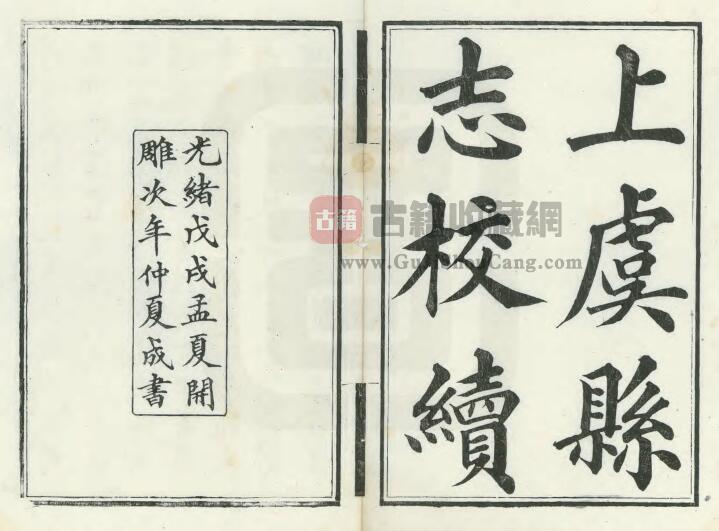 上虞縣
志校續
光緒戊戌孟夏開
雕次年仲夏成書
古籍 古籍收藏網
www.GuJiShouCang.com